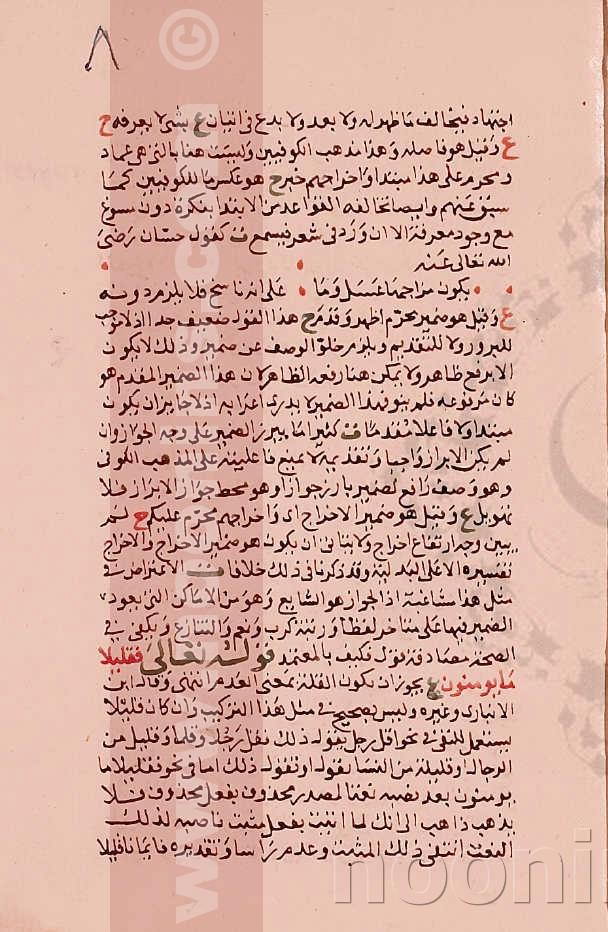 ٨
اجتهاد فيخالف ما ظهر له ولا بعد ولا بدع في اتيان ع بشئ لا يعرفه ح
ع وقيل هو فاصلة وهذا مذهب الكوفيين وليست هنا بالتي هي عماد
ومحرم على هذا مبتدا واخراجهم خبر ح هو عكس ما للكوفيين كما
سبق عنهم وايضا تخالفه القواعد من الابتدا بنكرة دون مسوغ
مع وجود معرفة الا ان ورد في شعر فيسمع ت كقول حسان رضى
الله تعالى عنه
يكون مزاجها عسل وما على انه ناسخ فلا يلزم دونه
ع وقيل هو ضمير محرم اظهر وقدم ح هذا القول ضعيف جدا اذ لا موجب
للبروز ولا للتقديم ويلزم خلو الوصف عن ضمير وذلك لا يكون
الا برفع ظاهر ولا يمكن هنا رفعه الظاهر لان هذا الضمير المقدم هو
كان مرفوعه فلم يبق وهذا الضمير لا يدرى اعرابه اذ لا جايز ان يكون
مبتدا ولا فاعلا مقدما ت كثيرا ما يبرز الضمير على وجه الجواز وان
لم يكن الابراز واجبا وتقديمه لا يمنع فاعليته على المذهب الكوفي
وهو وصف رافع لضمير بارز جوازا وهو محط جواز الابراز فلا
تهويل ع وقيل هو ضمير الاخراج اى واخراجهم محرم عليكم ح لم
يبين وجه ارتفاع اخراج ولا يتاتى ان يكون هو ضمير الاخراج والاخراج
تفسيره الا على البدلية وقد ذكر فى ذلك خلافا ت الاعتراض في
مثل هذا مشاغبة اذ الجواز هو الشايع وهو من الاماكن التي يعود
الضمير فيها على متاخر لفظا ورتبة كرب ونعم والتنازع ويكفي في
الصحة مصادقة قول فكيف بالمعتمد قوله تعالى فقليلا
ما يومنون ع يجوز ان يكون القلة بمعنى العدم انتهى وقاله ابن
الانبارى وغيره وليس بصحيح في مثل هذا التركيب وان كان قليلا
يستعمل للنفي في نحو اقل رجل يقول ذلك وقل رجل وقلما وقليل من
الرجال او قليلة من النسا يقول او تقول ذلك اما في نحو فقليلا ما
يومنون بعد نصبه نعتا لمصدر محذوف بفعل محذوف فلا
يذهب ذاهب الى انك لما اتيت بفعل مثبت ناصبه لذلك
النعت انتفى ذلك المثبت وعدم راسا وتقديره فايمانا قليلا
www.noonlib.com ©
noonli